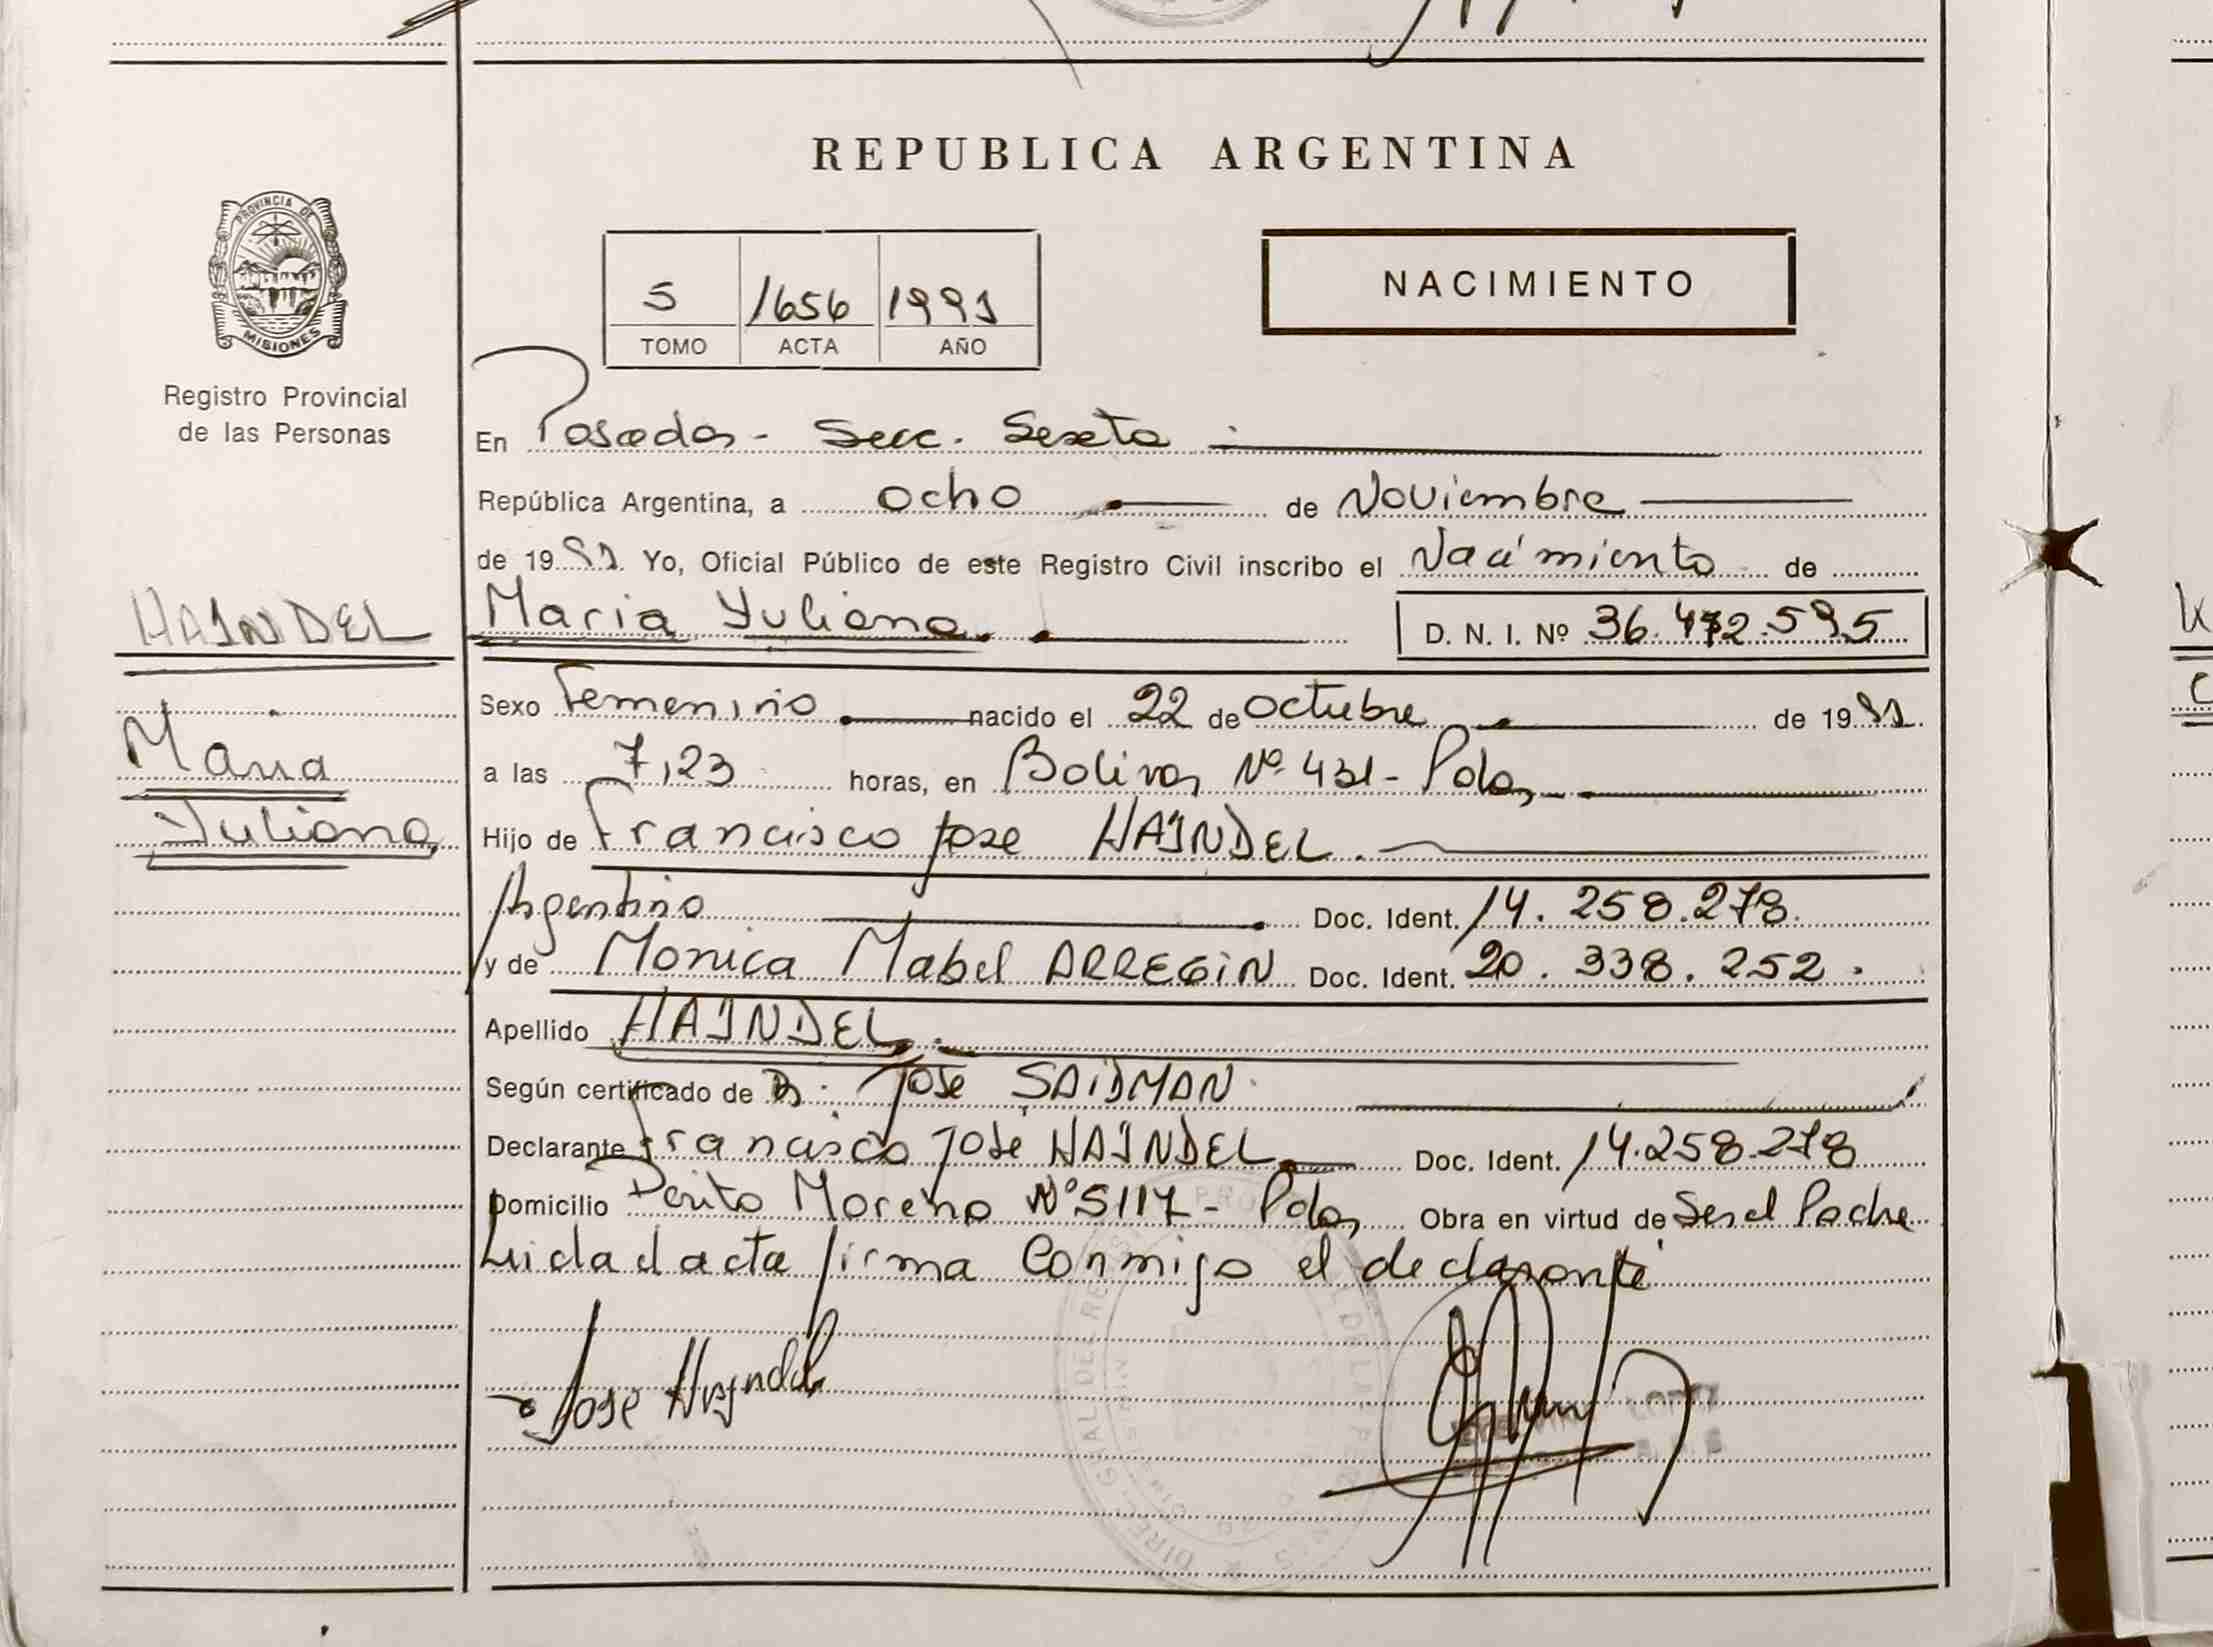 REPUBLICA ARGENTINA
PROVINCIA DE
MISIONES
Registro Provincial
de las Personas
5 1656 1991
TOMO ACTA AÑO
NACIMIENTO
En Posadas - Secc. Sexta
República Argentina, a ocho de Noviembre
de 1991 Yo, Oficial Público de este Registro Civil inscribo el Nacimiento de
HAINDEL
Maria Yuliana
Maria Yuliana. D. N. I. Nº 36.472.595
Sexo Femenino nacido el 22 de Octubre de 1991
a las 7,23 horas, en Bolivar Nº 431 - Pdas
Hijo de Francisco Jose HAINDEL.
Argentino Doc. Ident. 14.258.278.
y de Monica Mabel ARREGIN Doc. Ident. 20.338.252.
Apellido HAINDEL.
Según certificado de Dr. Jose SAIDMAN.
Declarante Francisco José HAINDEL Doc. Ident. 14.258.278
Domicilio Perito Moreno Nº 5117 - Pdas Obra en virtud de Ser el Padre
Leida el acta firma Conmigo el declarante
Jose Haindel